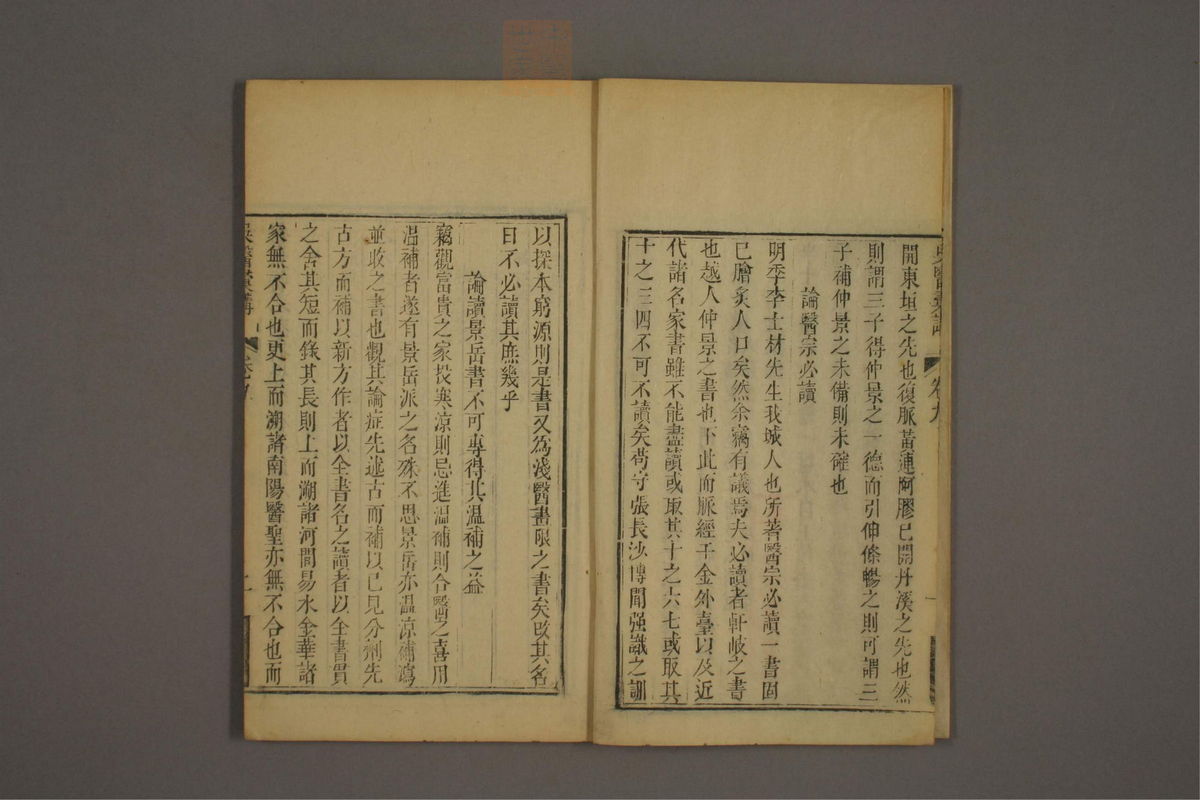 開東垣之先也復脈黃連阿膠已開丹溪之先也然
則謂三子得仲景之一德而引伸條暢之則可謂三
子補仲景之未備則未確也
論醫宗必讀
明季李士材先生我城人也所著醫宗必讀一書固
已膾炙人口矣然余竊有議焉夫必讀者軒岐之書
也越人仲景之書也下此而脈經千金外臺以及近
代諸名家書雖不能盡讀或取其十之六七或取其
十之三四不可不讀矣苟守張長沙博聞强識之訓
以探本窮源則是書又為淺醫畫限之書矣改其名
曰不必讀其庶幾乎
論讀景岳書不可專得其溫補之益
竊觀富貴之家投寒涼則忌進溫補則合醫之喜用
溫補者遂有景岳派之名殊不思景岳亦溫涼補瀉
並收之書也觀其論症先述古而補以己見分劑先
古方而補以新方作者以全書名之讀者以全書貫
之舍其短而錄其長則上而溯諸河間易水金華諸
家無不合也更上而溯諸南陽醫聖亦無不合也而